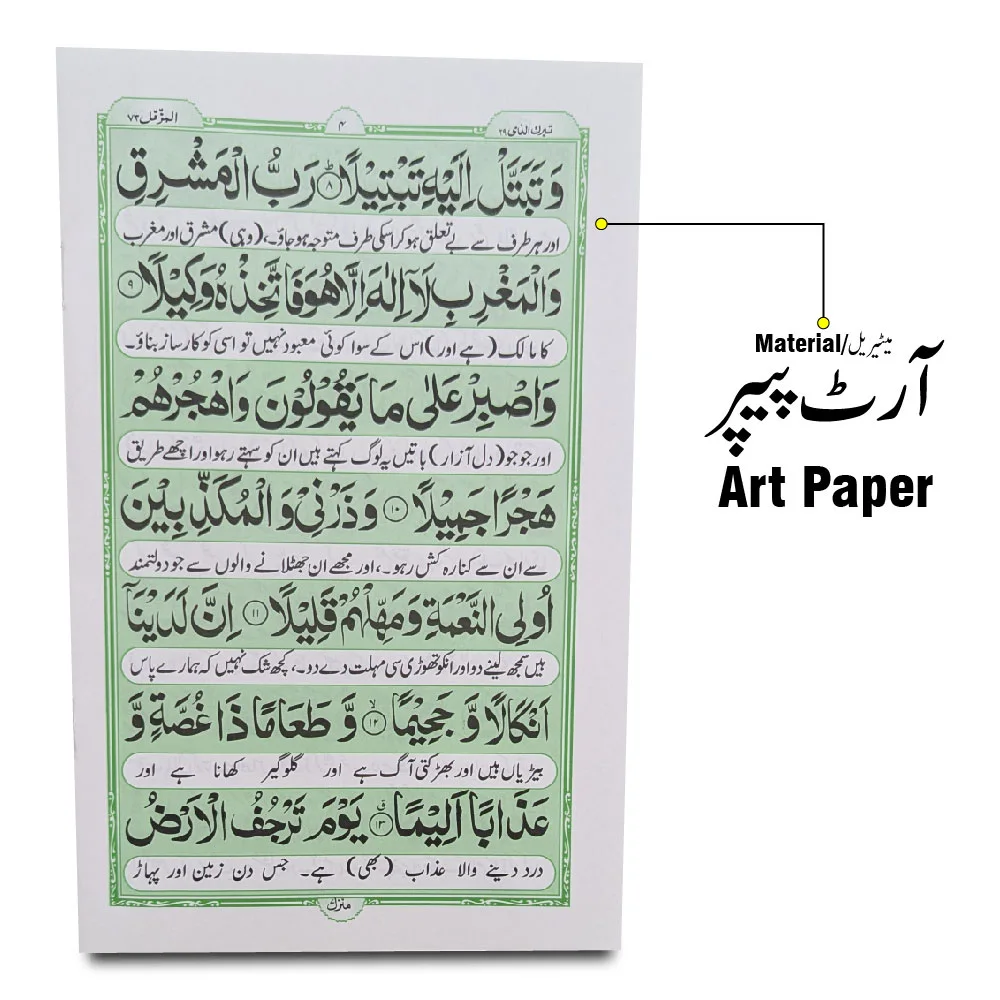 تبرك الذى ٢٩
٤
المزّمّل ٧٣
وَتَبَتَّلْ اِلَيْهِ تَبْتِيْلًا ؕ ۸ رَبُّ الْمَشْرِقِ
اور ہر طرف سے بے تعلق ہو کر اسکی طرف متوجہ ہو جاؤ۔، (وہی) مشرق اور مغرب
وَالْمَغْرِبِ لَاۤ اِلٰهَ اِلَّا هُوَ فَاتَّخِذْهُ وَكِيْلًا ۹
کا مالک (ہے اور) اس کے سوا کوئی معبود نہیں تو اسی کو کارساز بناؤ۔
وَاصْبِرْ عَلٰى مَا يَقُوْلُوْنَ وَاهْجُرْهُمْ
اور جو جو (دل آزار) باتیں یہ لوگ کہتے ہیں ان کو سہتے رہو اور اچھے طریق
هَجْرًا جَمِيْلًا ۱۰ وَذَرْنِيْ وَالْمُكَذِّبِيْنَ
سے ان سے کنارہ کش رہو۔، اور مجھے ان جھٹلانے والوں سے جو دولتمند
اُولِى النَّعْمَةِ وَمَهِّلْهُمْ قَلِيْلًا ۱۱ اِنَّ لَدَيْنَاۤ
ہیں سمجھ لینے دو اور انکو تھوڑی سی مہلت دے دو۔، کچھ شک نہیں کہ ہمارے پاس
اَنْكَالًا وَّ جَحِيْمًا ۙ ۱۲ وَّ طَعَامًا ذَا غُصَّةٍ وَّ
بیڑیاں ہیں اور بھڑکتی آگ ہے اور گلوگیر کھانا ہے اور
عَذَابًا اَلِيْمًا ۱۳ يَوْمَ تَرْجُفُ الْاَرْضُ
درد دینے والا عذاب (بھی) ہے۔ جس دن زمین اور پہاڑ
منزل
Material/میٹیریل
آرٹ پیپر
Art Paper